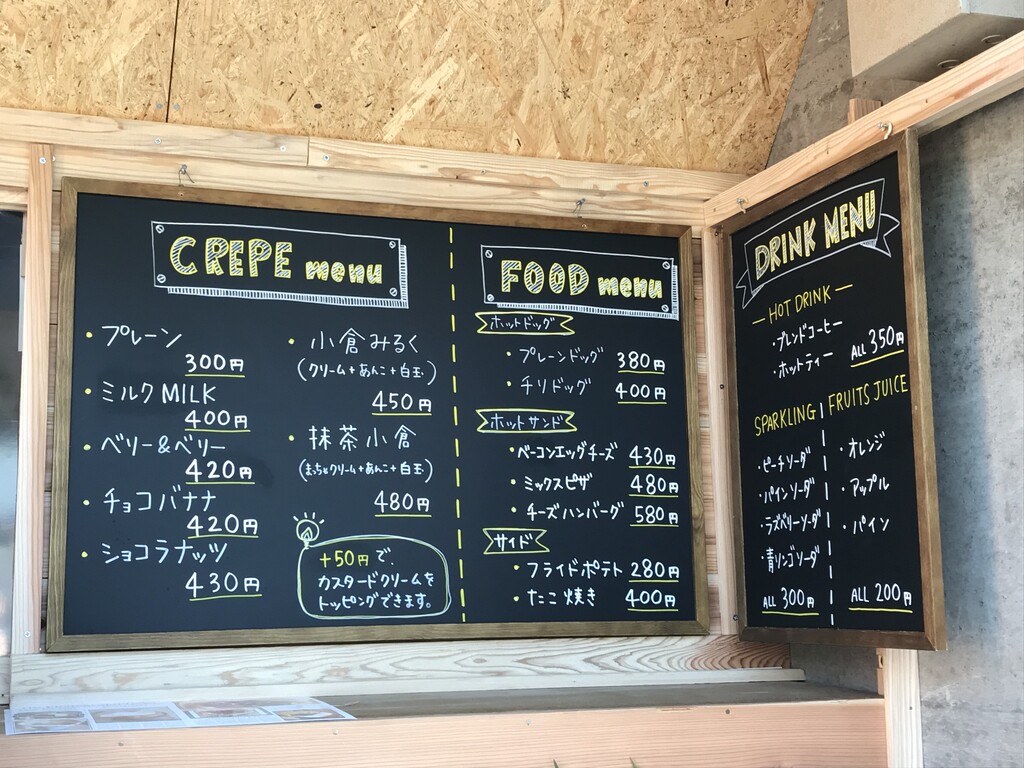 CREPE menu
・プレーン
300円
・ミルクMILK
400円
・ベリー&ベリー
420円
・チョコバナナ
420円
・ショコラナッツ
430円
・小倉みるく
(クリーム+あんこ+白玉)
450円
・抹茶小倉
(まっちゃクリーム+あんこ+白玉)
480円
+50円で、
カスタードクリームを
トッピングできます。
FOOD menu
ホットドッグ
・プレーンドッグ 380円
・チリドッグ 400円
ホットサンド
・ベーコンエッグチーズ 430円
・ミックスピザ 480円
・チーズハンバーグ 580円
サイド
・フライドポテト 280円
・たこ焼き 400円
DRINK MENU
―HOT DRINK―
・ブレンドコーヒー
・ホットティー
ALL 350円
SPARKLING
・ピーチソーダ
・パインソーダ
・ラズベリーソーダ
・青リンゴソーダ
ALL 300円
FRUITS JUICE
・オレンジ
・アップル
・パイン
ALL 200円